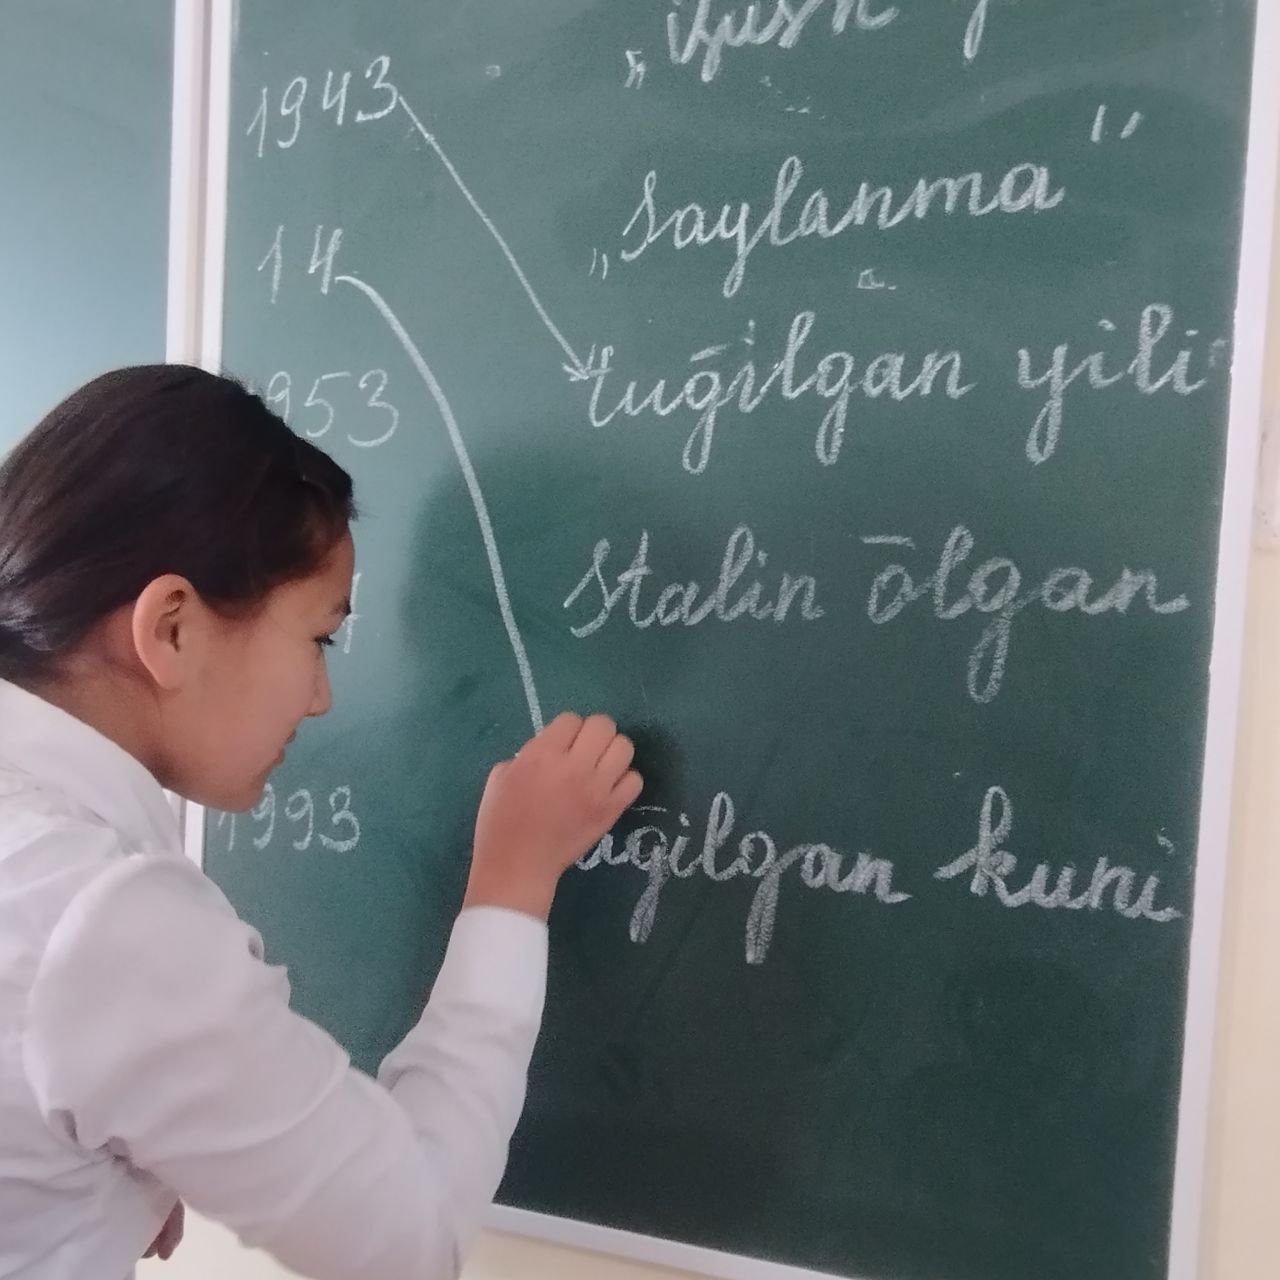 1943
14
953
1993
„Saylanma"
"Tuḡilgan yili
Stalin ōlgan
uḡilgan kuni